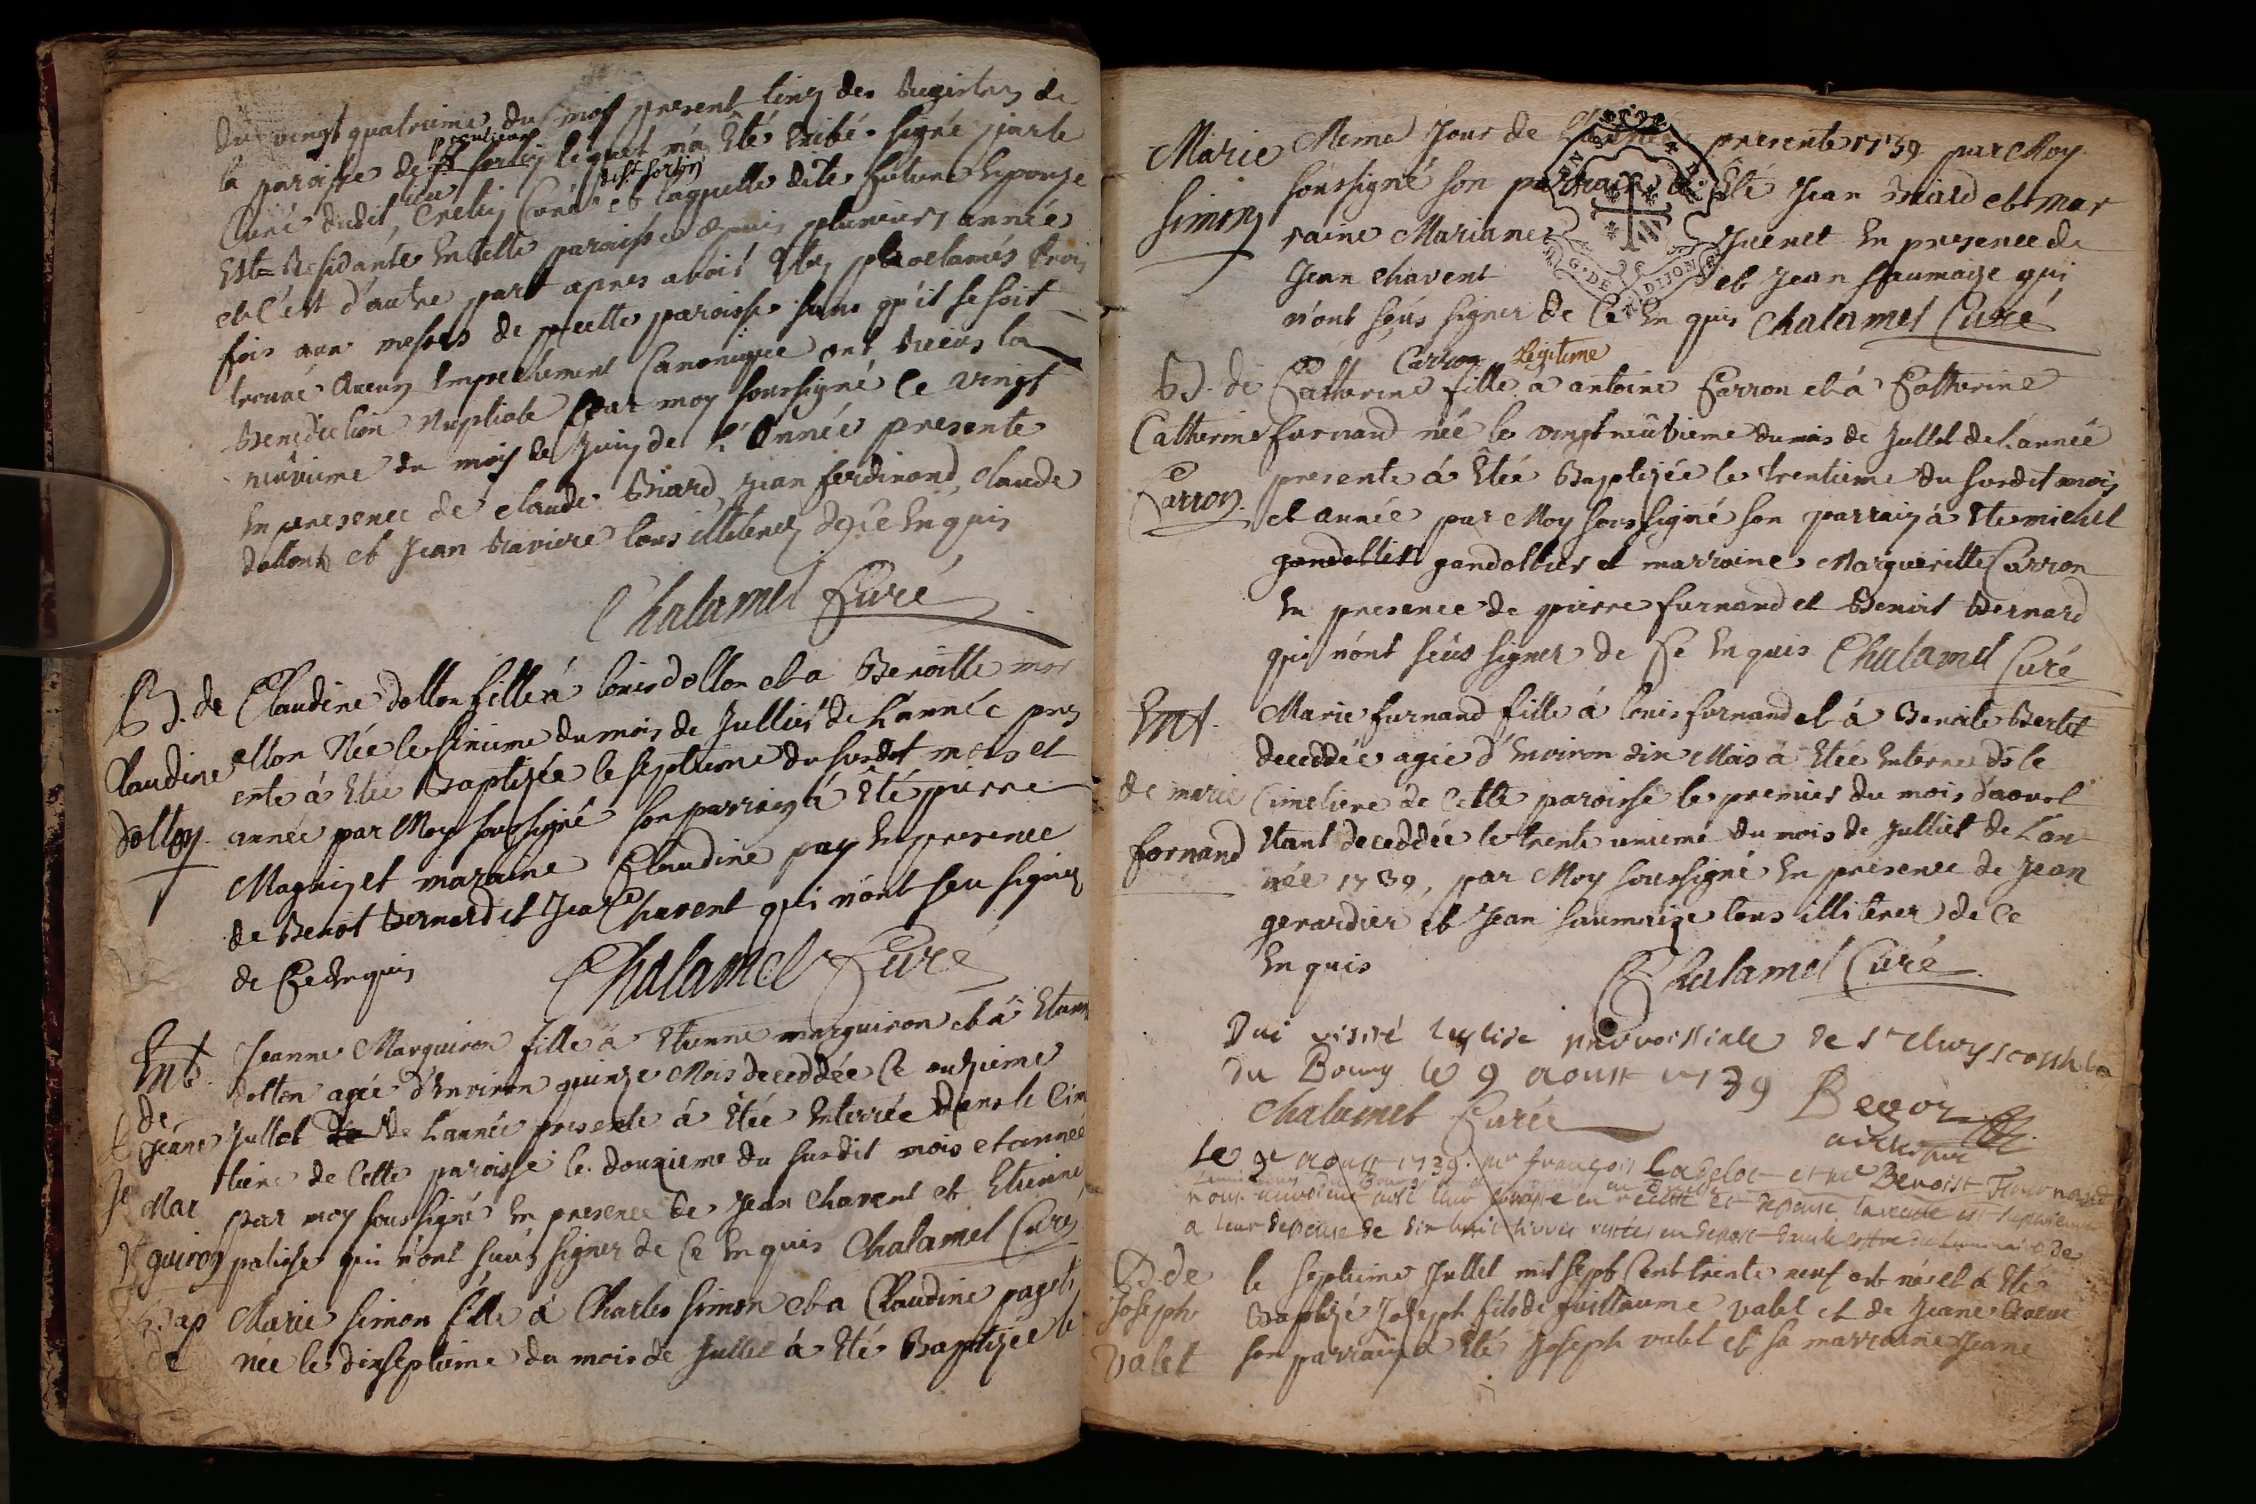 du vingt quatrieme du mois present tiré des Registres de
la paroisse de lequel m'a Eté Exibé signé par le
Curé dudit lieu Curé et laquelle dite future Epouze
Est Residánte En cette paroisse depuis plusieurs année
et C'est d'autre part apres avoir Eté proclamés trois
fois aux messes de paroisse sans qu'il se soit
trouvé Aucun Empechement Canonique ont Reçus la
Benediction Nuptiale par moy soussigné Ce vingt
neuvieme du mois de Juin de l'Année presente
En presence de claude Biard, jean ferdinand, claude
dollon et Jean Raviere tous illiterez de ce Enquis
Chalamel Curé
B. de
Claudine
dollon
Claudine dollon fille á louis dollon et a Benoitte mor
ellon Née le sixieme du mois de Julliet de l'année pres
ente á Etée Baptizée le septieme du susdit mois et
année par Moy soussigné son parrain á Eté pierre
Magnin et maraine Claudine pay En presence
de Benoit Bernard et Jean Chavent qui n'ont seu signer
de Ce Enquis
Chalamel Curé
Ent.
de
Jeane
Mar
guiron
Jeanne Marguiron fille á Etienne marguiron et á Etien
dollon agée d'Environ quinze Mois deceddée Ce onzieme
Jullet de L'année presente á Etée Enterrée Dans le Cim
tiere de Cette paroisse le douzieme du susdit mois et année
par moy soussigné En presence de Jean Chavent et Etienne
palisse qui n'ont seus signer de Ce En quis Chalamel Curé
Bap
de
Marie Simon fille á Charles Simon et a Claudine paget
née le dixseptieme du mois de Jullet á Eté Baptizée le
Marie
Simon
Meme Jour de L'année presente 1739 par Moy
soussigné son parrain á Eté Jean Biard et mar
raine Mariane Juenet En presence de
Jean Chavent et Jean Saumaize qui
n'ont seus signer de Ce En quis Chalamel Curé
G. DE DIJON
B. de
Catherine
Carron
Carron Legitime
Catherine fille á antoine Carron et á Catherine
furnand née le vingt neuvieme du mois de Jullet de L'année
presente á Etée Baptizée le trentieme du susdit mois
et année par Moy soussigné son parrain á Ete michel
gandollier gandollier et marraine Margueritte Carron
En presence de pierre furnand et Benoit Bernard
qui n'ont seus signer de Ce En quis Chalamel Curé
Ent.
de marie
fornand
Marie furnand fille á louis furnand et á Benoite Bertet
deceddée agée d'Environ dix Mois á Etée Enterrée ds le
Cimetiere de Cette paroisse le premier du mois d'aoust
Etant deceddée le trente unieme du mois de Julliet de L'an
née 1739, par Moy soussigné En presence de Jean
gerardier et Jean Saumaize tous illiterez de Ce
En quis
Chalamel Curé
Vui visité l'eglise parroissiale de St
du Bourg le 9 aoust 1739
Chalamel Curé
Le 9e aoust 1739. Mr françois et Me Benoist
a leur depense de dix huit livres
B. de
Joseph
Valet
le septieme Jullet mil sept Cent trente neuf est né et á Eté
Baptizé Joseph fils de guillaume valet et de Jeane
son parrain á Eté Joseph valet et sa marraine Jeane